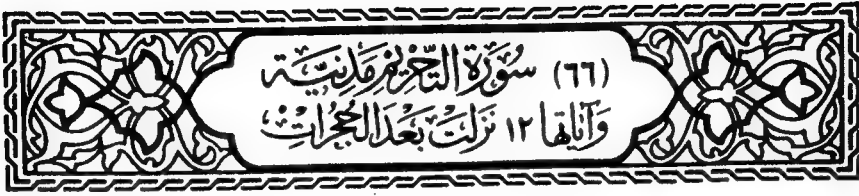 (٦٦) سُورَةُ التَّحْرِيمِ مَدَنِيَّة
وَآيَاتُهَا ١٢ نَزَلَتْ بَعْدَ الْحُجُرَاتِ